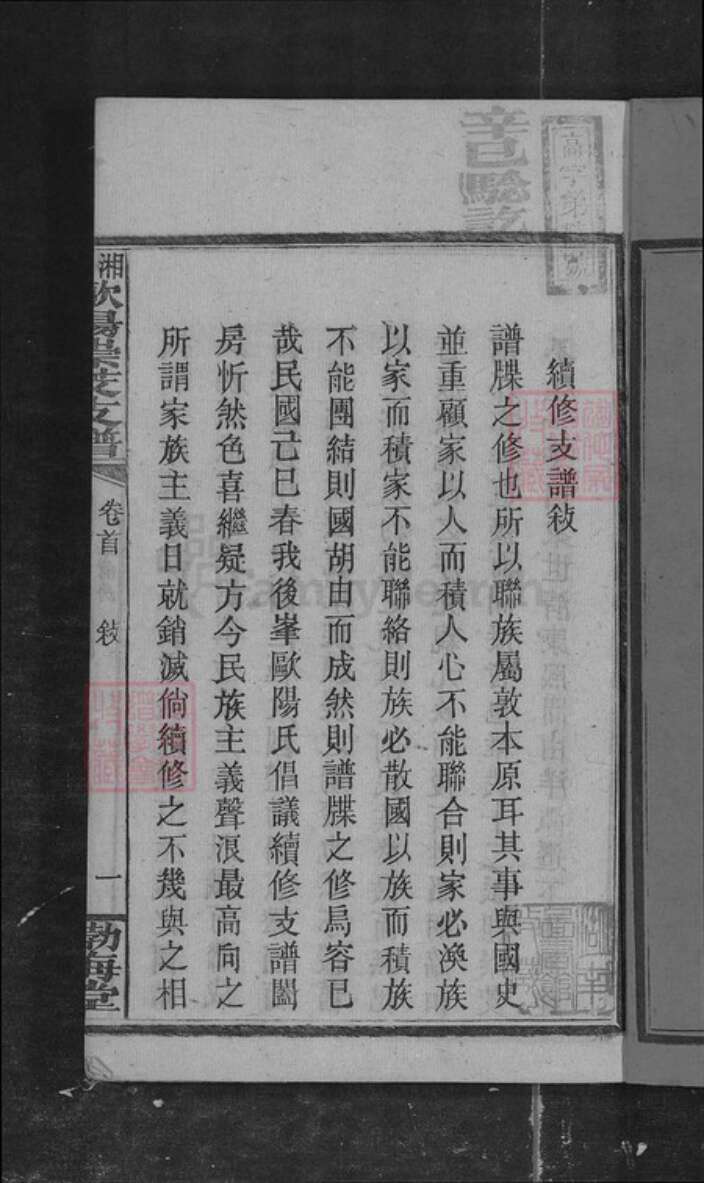 續修支譜敍
譜牒之修也所以聯族屬敦本原耳其事與國史
並重顧家以人而積人心不能聯合則家必渙族
以家而積家不能聯絡則族必散國以族而積族
不能團結則國胡由而成然則譜牒之修烏容已
哉民國己巳春我後峯歐陽氏倡議續修支譜闔
房忻然色喜繼疑方今民族主義聲浪最高向之
所謂家族主義日就銷滅倘續修之不幾與之相
湘
支譜
卷首
敍
一
渤海堂